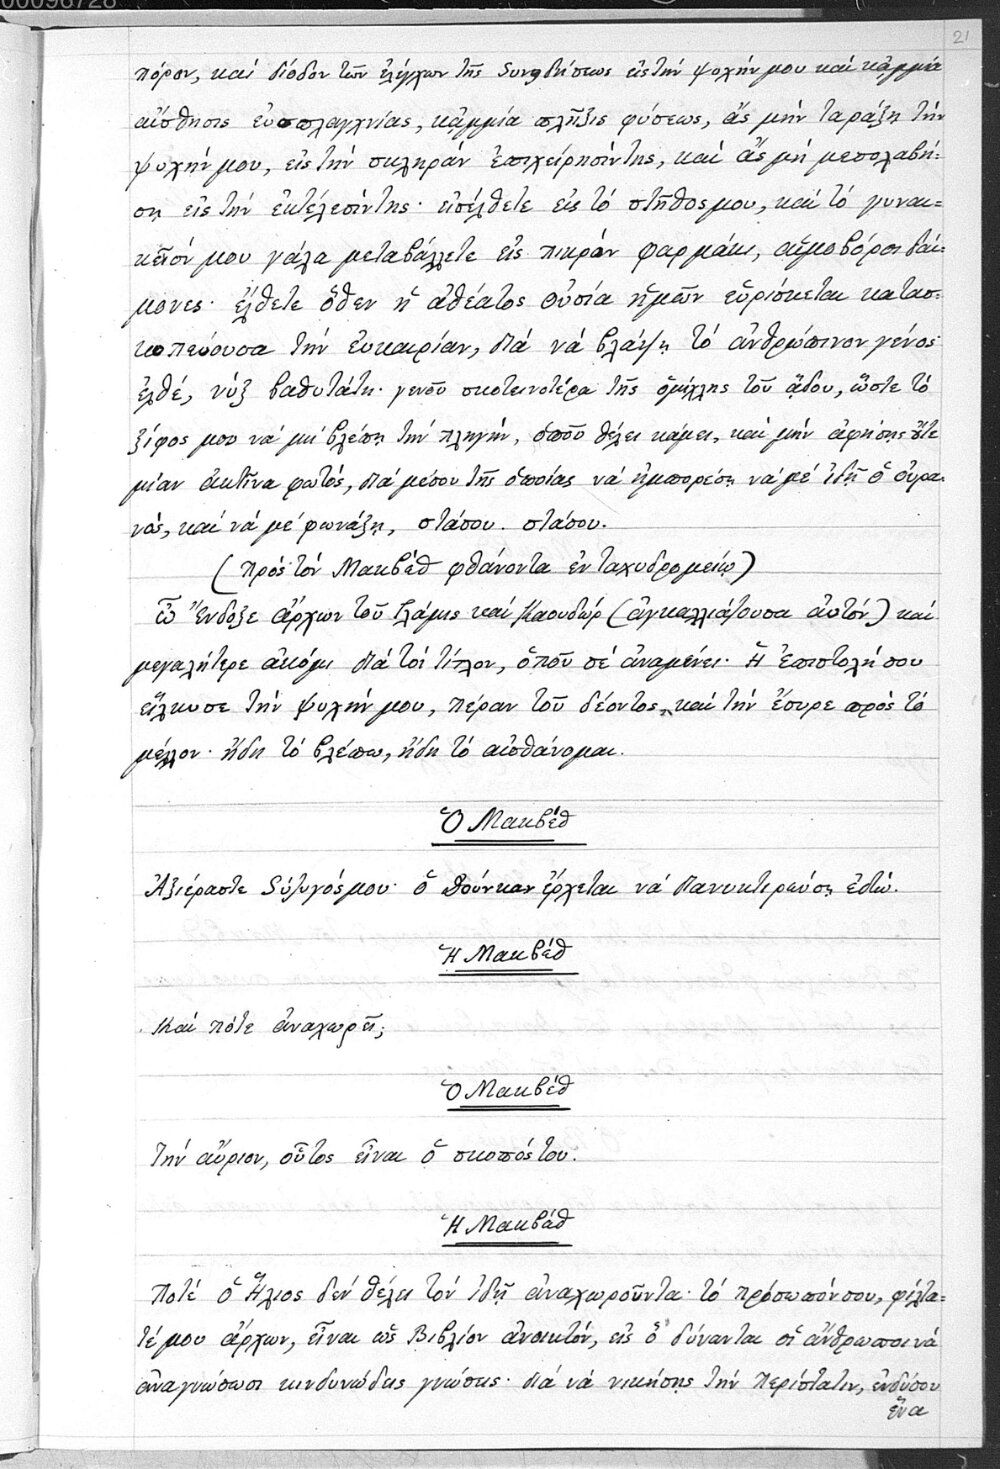 00096728
21
πόρον, καὶ δίοδον τῶν ἐλέγχων τῆς συνηδήσεως εἰς τὴν ψυχήν μου καὶ κᾀμμία
αἴσθησις εὐσπλαγχνίας, κᾀμμία πλῆξις φύσεως, ἂς μὴν ταράξῃ τὴν
ψυχήν μου, εἰς τὴν σκληρὰν ἐπιχείρησίν της, καὶ ἂς μὴ μεσολαβή=
σῃ εἰς τὴν ἐκτέλεσίν της· εἰσέλθετε εἰς τὸ στῆθος μου, καὶ τὸ γυναι=
κεῖόν μου γάλα μεταβάλλετε εἰς πικρὰν φαρμάκι, αἱμοβόροι δαί=
μονες· ἔλθετε ὅθεν ἡ ἀθέατος οὐσία ἡμῶν εὑρίσκεται κατασ=
κοπεύουσα τὴν εὐκαιρίαν, διὰ νὰ βλάψῃ τὸ ἀνθρώπινον γένος·
ἐλθέ, νὺξ βαθυτάτη· γενοῦ σκοτεινοτέρα τῆς ὁμίχλης τοῦ ᾅδου, ὥστε τὸ
ξίφος μου νὰ μὴ βλέπῃ τὴν πληγήν, ὁποῦ θέλει κάμει, καὶ μὴν ἀφήσῃς οὔτε
μίαν ἀκτῖνα φωτός, διὰ μέσου τῆς ὁποίας νὰ ἠμπορέσῃ νὰ μὲ ἰδῇ ὁ οὐρα=
νός, καὶ νὰ μὲ φωνάξῃ, στάσου. στάσου.
(πρὸς τὸν Μακβὲθ φθάνοντα ἐν ταχυδρομείῳ)
ὦ Ἔνδοξε ἄρχων τοῦ Γλάμις καὶ Καουδώρ (ἀγκαλλιάζουσα αὐτόν) καὶ
μεγαλήτερε ἀκόμι διὰ τὸν τίτλον, ὁποῦ σὲ ἀναμένει· ἡ ἐπιστολή σου
εἵλκυσε τὴν ψυχήν μου, πέραν τοῦ δέοντος, καὶ τὴν ἔσυρε πρὸς τὸ
μέλλον· ἤδη τὸ βλέπω, ἤδη τὸ αἰσθάνομαι.
Ὁ Μακβὲθ
Ἀξιέραστε σύζυγός μου· ὁ Δούνκαν ἔρχεται νὰ διανυκτερεύσῃ ἐδῶ.
Ἡ Μακβὲθ
Καὶ πότε ἀναχωρεῖ;
Ὁ Μακβὲθ
Τὴν αὔριον, οὗτος εἶναι ὁ σκοπός του.
Ἡ Μακβὲθ
Ποτὲ ὁ Ἥλιος δὲν θέλει τὸν ἰδῇ ἀναχωροῦντα· τὸ πρόσωπόν σου, φίλτα=
τέ μου ἄρχων, εἶναι ὡς Βιβλίον ἀνοικτόν, εἰς ὃ δύνανται οἱ ἄνθρωποι νὰ
ἀναγνώσωσι κινδυνώδεις γνώσεις· διὰ νὰ νικήσῃς τὴν περίστασιν, ἐνδύσου
ἕνα